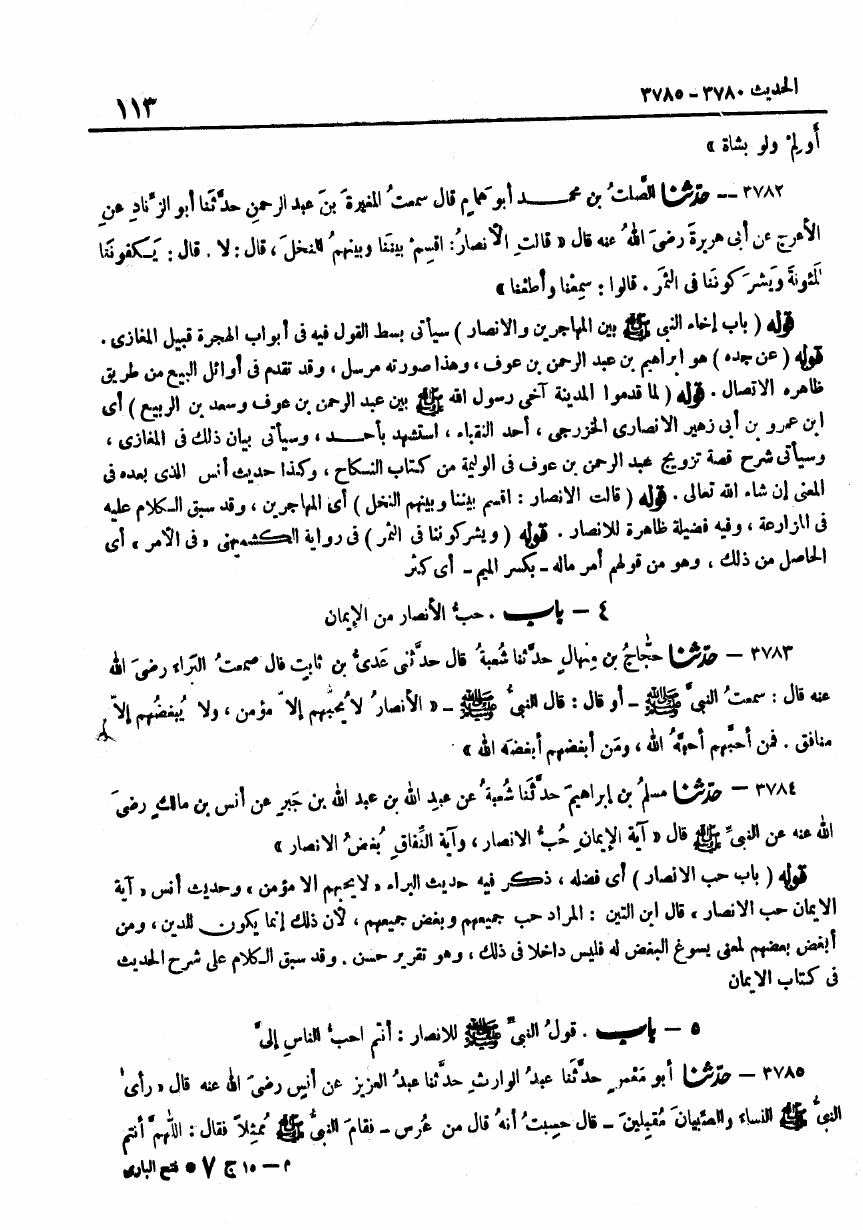 الحديث ٣٧٨٠ - ٣٧٨٥
١١٣
أولِمْ ولو بشاة »
٣٧٨٢ -- حدّثنا الصَّلتُ بن محمد أبو همام قال سمعتُ المغيرةَ بنَ عبد الرحمنِ حدَّثَنا أبو الزِّنادِ عنِ
الأعرج عن أبى هريرةَ رضىَ اللهُ عنه قال « قالتِ الأنصارُ: اقسِمْ بيننَا وبينهمُ النخلَ ، قال : لا . قال : يَكفونَنا
المَئونةَ ويَشرَكونَنا فى التمْر . قالوا : سمِعْنا وأطعْنا »
قوله ( باب إخاء النبى ﷺ بين المهاجرين والانصار ) سيأتى بسط القول فيه فى أبواب الهجرة قبيل المغازى .
قوله ( عن جده ) هو ابراهيم بن عبد الرحمن بن عوف ، وهذا صورته مرسل ، وقد تقدم فى أوائل البيع من طريق
ظاهره الاتصال . قوله ( لما قدموا المدينة آخى رسول الله ﷺ بين عبد الرحمن بن عوف وسعد بن الربيع ) أى
ابن عمرو بن أبى زهير الانصارى الخزرجى ، أحد النقباء ، استشهد بأحد ، وسيأتى بيان ذلك فى المغازى ،
وسيأتى شرح قصة تزويج عبد الرحمن بن عوف فى الوليمة من كتاب النكاح ، وكذا حديث أنس الذى بعده فى
المعنى إن شاء الله تعالى . قوله ( قالت الانصار : اقسم بيننا وبينهم النخل ) أى المهاجرين ، وقد سبق الكلام عليه
فى المزارعة ، وفيه فضيلة ظاهرة للانصار . قوله ( ويشركوننا فى التمر ) فى رواية الكشميهنى « فى الأمر » أى
الحاصل من ذلك ، وهو من قولهم أمر ماله - بكسر الميم - أى كثر
٤ - باب . حبُّ الأنصار من الإيمان
٣٧٨٣ - حدّثنا حَجّاجُ بن مِنهالٍ حدَّثنا شُعبةُ قال حدَّثنى عَدىُّ بن ثابتٍ قال سمعتُ البَراء رضىَ الله
عنه قال : سمعتُ النبىَّ ﷺ - أو قال : قال النبىُّ ﷺ - « الأنصارُ لا يُحبُّهم إلاّ مؤمن ، ولا يُبغضُهم إلاّ
منافق . فمن أحبَّهم أحبَّهُ الله ، ومَن أبغضهم أبغضَه الله »
٣٧٨٤ - حدّثنا مسلمُ بن إبراهيمَ حدَّثنا شُعبةُ عن عبدِ الله بن عبد الله بن جَبرٍ عن أنس بن مالكٍ رضىَ
الله عنه عن النبىِّ ﷺ قال « آيةُ الإيمانِ حُبُّ الانصار ، وآية النِّفاقِ بُغضُ الانصار »
قوله ( باب حب الانصار ) أى فضله ، ذكر فيه حديث البراء « لا يحبهم الا مؤمن » وحديث أنس « آية
الايمان حب الانصار » قال ابن التين : المراد حب جميعهم وبغض جميعهم ، لأن ذلك إنما يكون للدين ، ومن
أبغض بعضهم لمعنى يسوغ البغض له فليس داخلا فى ذلك ، وهو تقرير حسن . وقد سبق الكلام على شرح الحديث
فى كتاب الايمان
٥ - باب . قولُ النبىِّ ﷺ للانصار : أنتم احبُّ الناسِ إلىَّ
٣٧٨٥ - حدّثنا أبو مَعْمرٍ حدَّثَنا عبدُ الوارثِ حدَّثنا عبدُ العزيز عن أنسٍ رضىَ الله عنه قال « رأى
النبىُّ ﷺ النساء والصِّبيانَ مُقبِلينَ - قال حسِبتُ أنهُ قال من عُرس - فقامَ النبىُّ ﷺ مُمثِلاً فقال : اللّهمَّ أنتم
م - ١٥ ج ٧ * فتح البارى